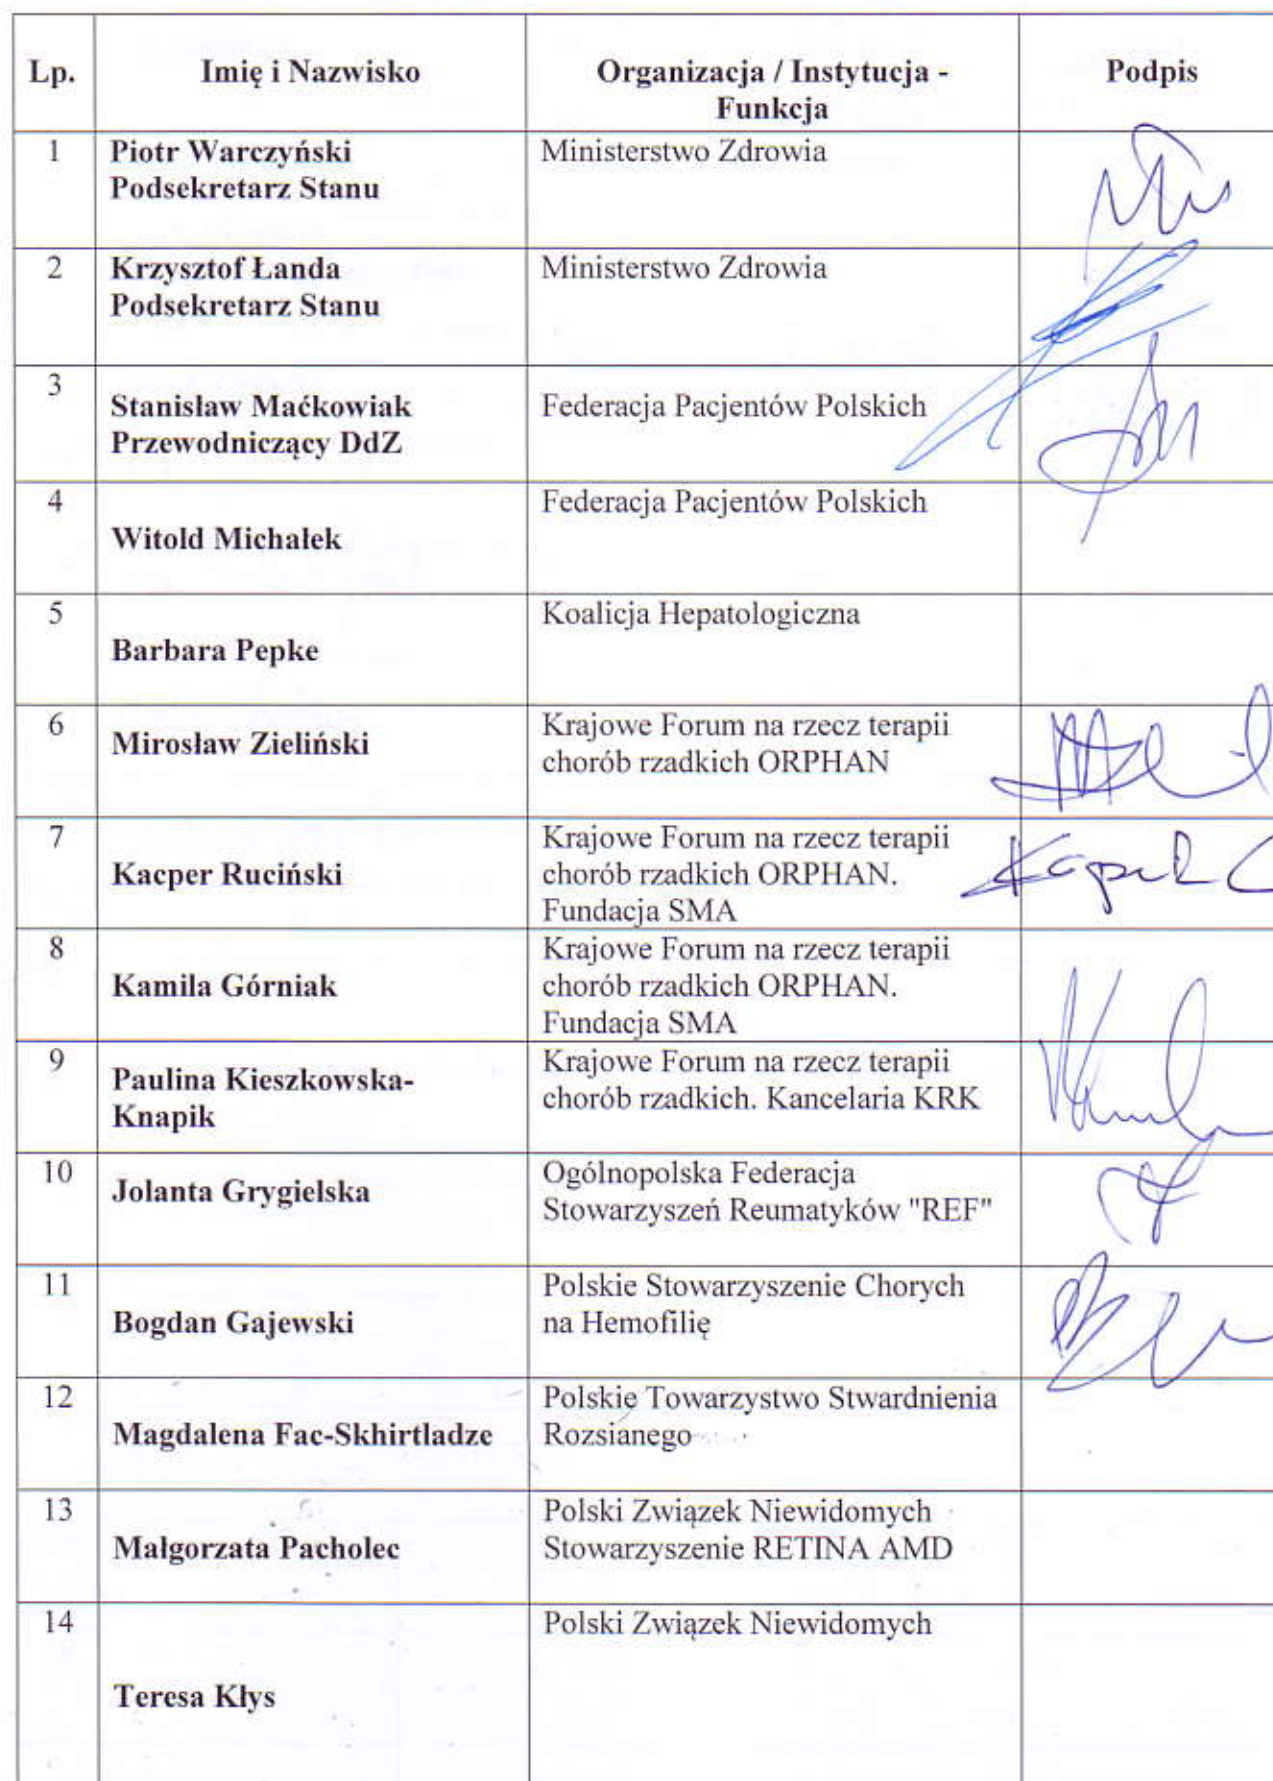 Lp.
Imię i Nazwisko
Organizacja / Instytucja -
Funkcja
Podpis
1
Piotr Warczyński
Podsekretarz Stanu
Ministerstwo Zdrowia
2
Krzysztof Łanda
Podsekretarz Stanu
Ministerstwo Zdrowia
3
Stanisław Maćkowiak
Przewodniczący DdZ
Federacja Pacjentów Polskich
4
Witold Michałek
Federacja Pacjentów Polskich
5
Barbara Pepke
Koalicja Hepatologiczna
6
Mirosław Zieliński
Krajowe Forum na rzecz terapii
chorób rzadkich ORPHAN
7
Kacper Ruciński
Krajowe Forum na rzecz terapii
chorób rzadkich ORPHAN.
Fundacja SMA
8
Kamila Górniak
Krajowe Forum na rzecz terapii
chorób rzadkich ORPHAN.
Fundacja SMA
9
Paulina Kieszkowska-
Knapik
Krajowe Forum na rzecz terapii
chorób rzadkich. Kancelaria KRK
10
Jolanta Grygielska
Ogólnopolska Federacja
Stowarzyszeń Reumatyków "REF"
11
Bogdan Gajewski
Polskie Stowarzyszenie Chorych
na Hemofilię
12
Magdalena Fac-Skhirtladze
Polskie Towarzystwo Stwardnienia
Rozsianego
13
Małgorzata Pacholec
Polski Związek Niewidomych
Stowarzyszenie RETINA AMD
14
Teresa Kłys
Polski Związek Niewidomych